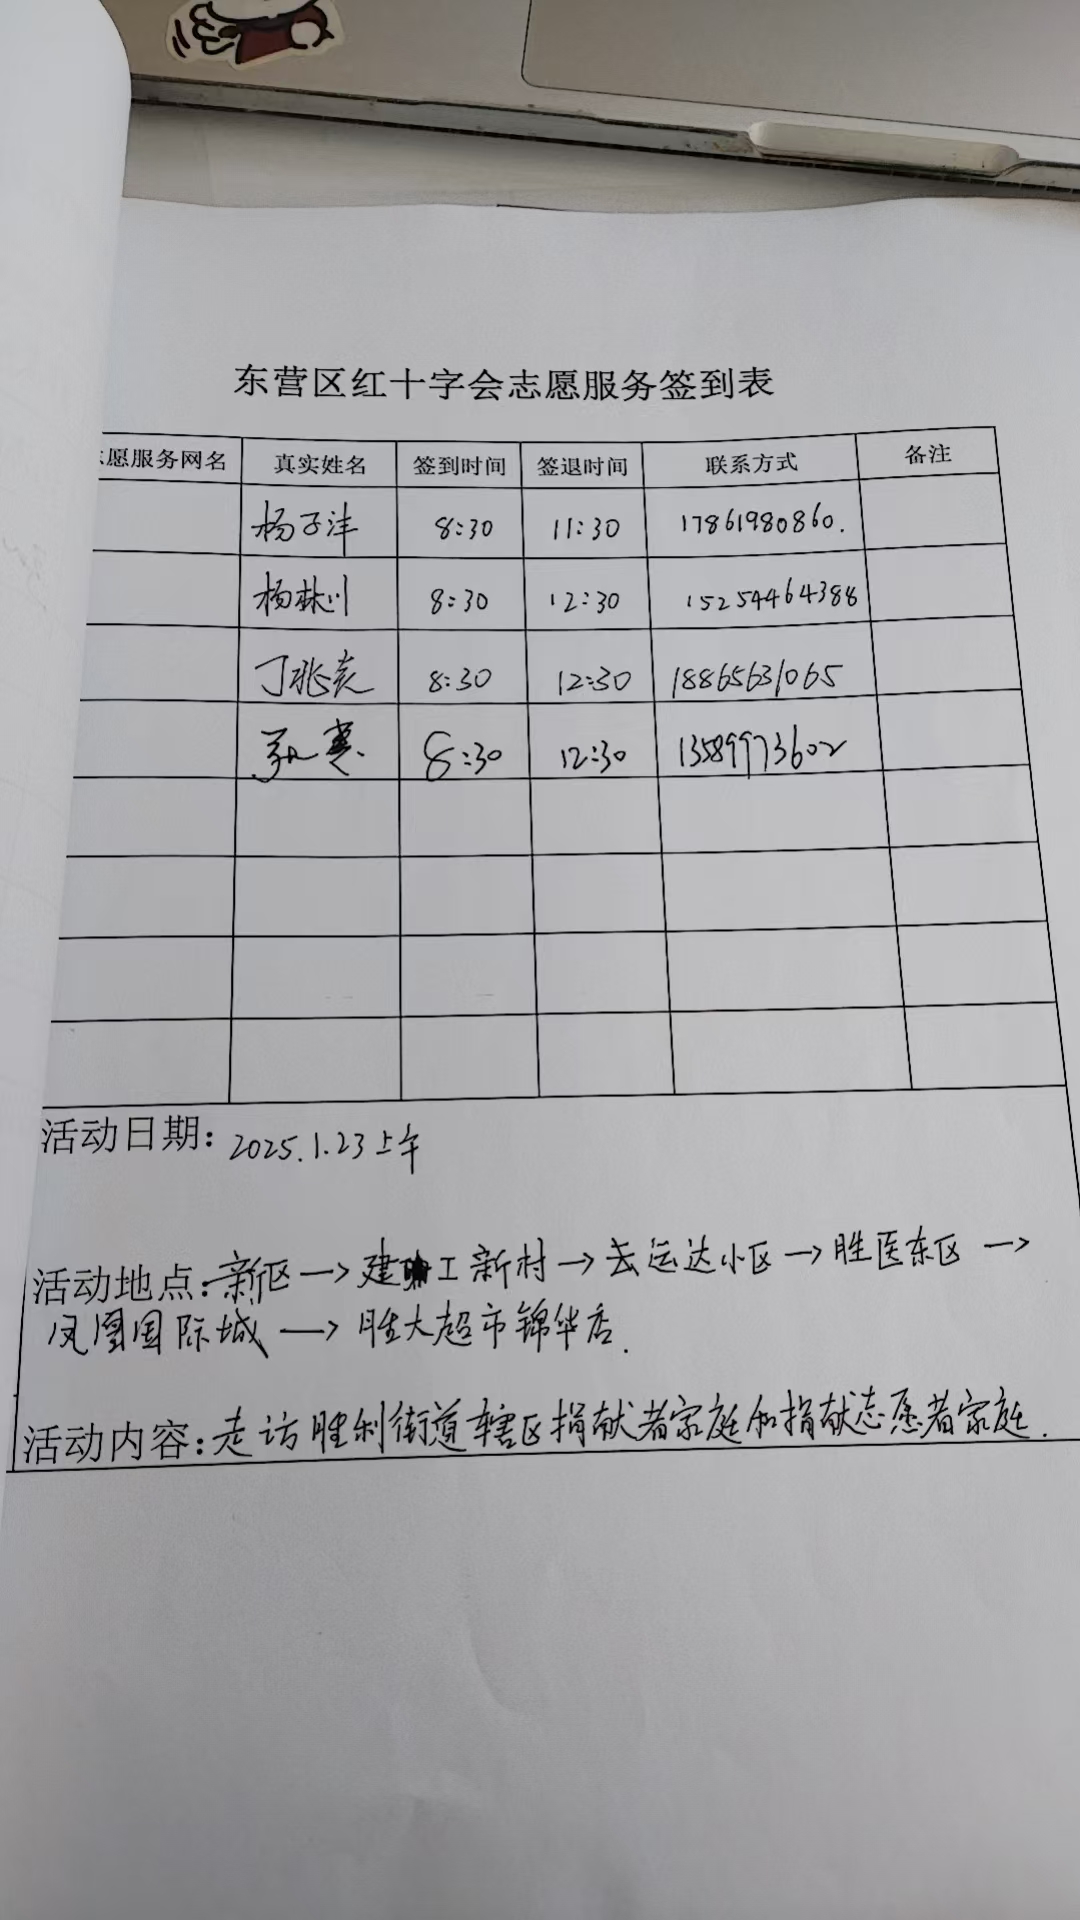 东营区红十字会志愿服务签到表
愿服务网名 真实姓名 签到时间 签退时间 联系方式 备注
杨子沣 8:30 11:30 17861980860.
杨林川 8:30 12:30 15254464388
丁兆 8:30 12:30 18865631065
8:30 12:30 13589973602
活动日期: 2025.1.23上午
活动地点: 新区→建工新村→去运达小区→胜医东区→
凤凰国际城→胜大超市锦华店.
活动内容: 走访胜利街道辖区捐献者家庭和捐献志愿者家庭.